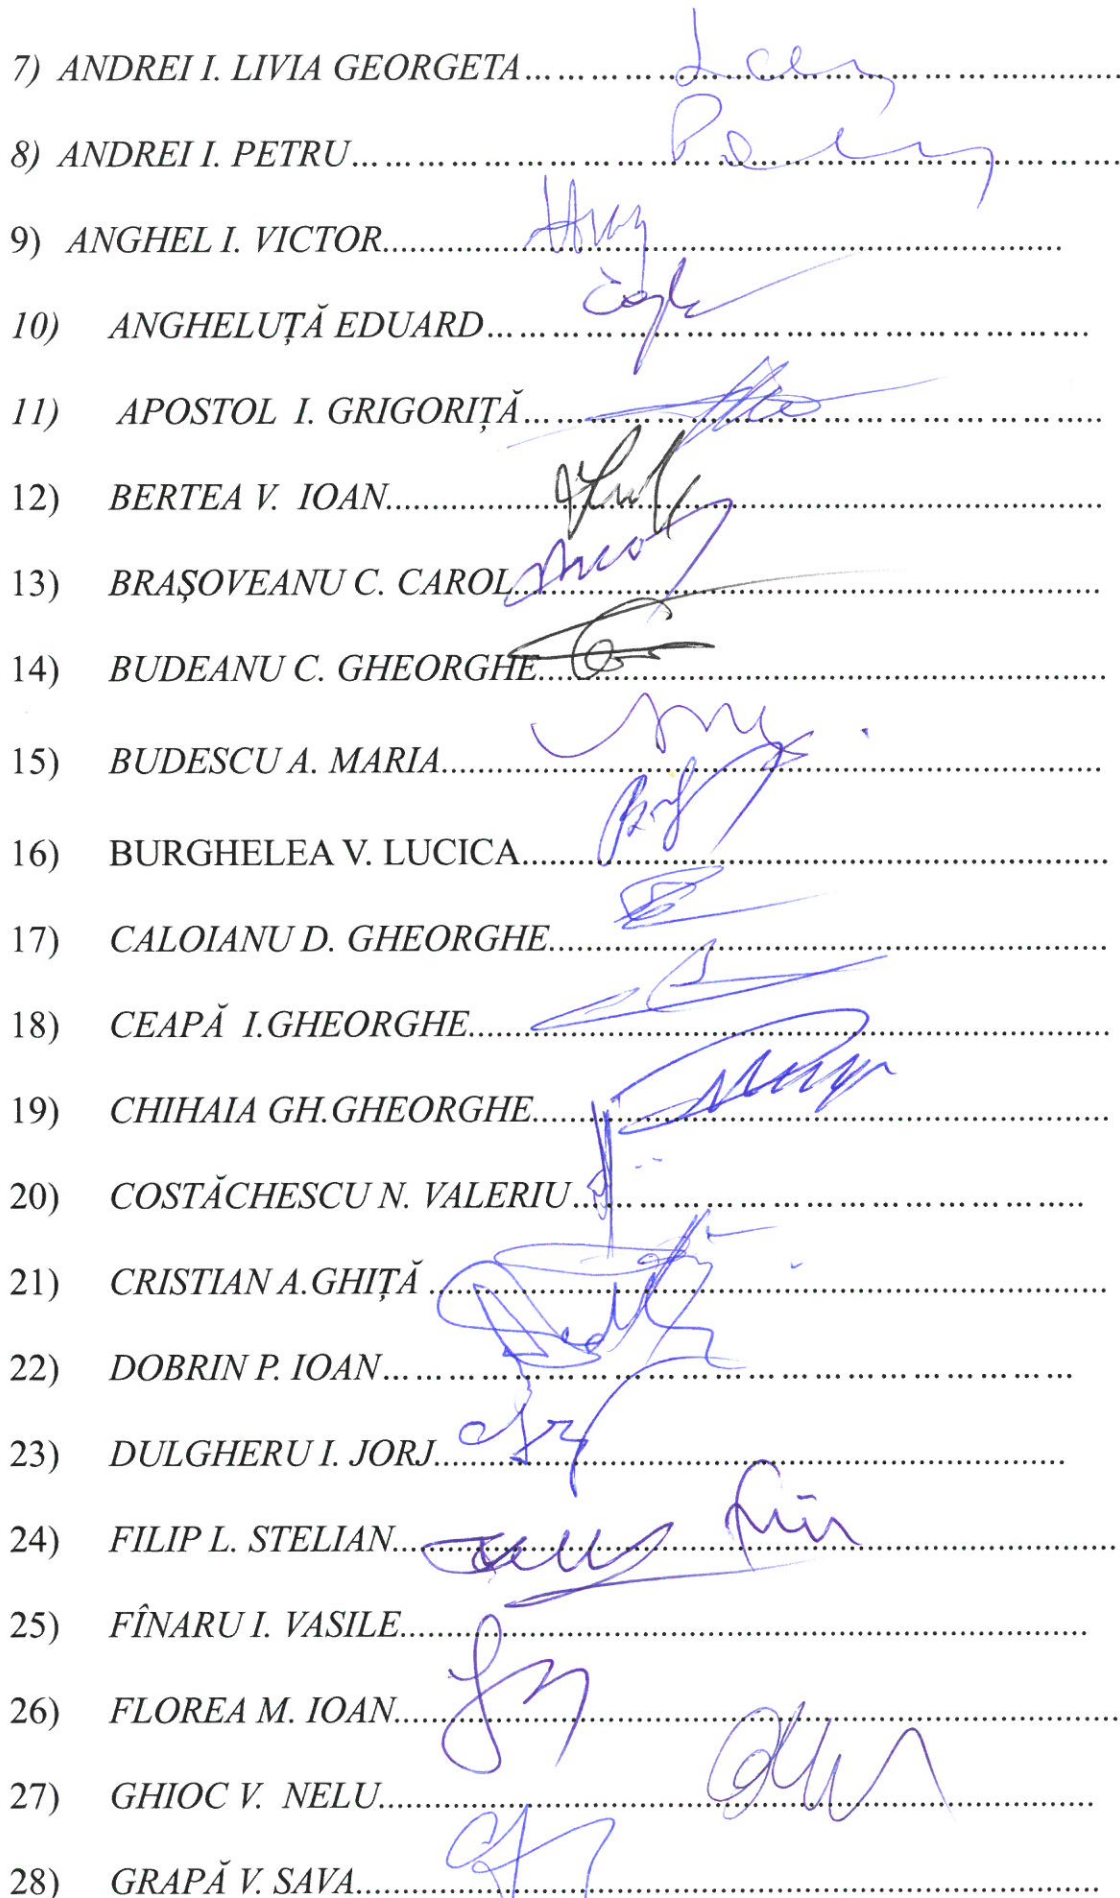 7) ANDREI I. LIVIA GEORGETA
8) ANDREI I. PETRU
9) ANGHEL I. VICTOR
10) ANGHELUȚĂ EDUARD
11) APOSTOL I. GRIGORIȚĂ
12) BERTEA V. IOAN
13) BRAȘOVEANU C. CAROL
14) BUDEANU C. GHEORGHE
15) BUDESCU A. MARIA
16) BURGHELEA V. LUCICA
17) CALOIANU D. GHEORGHE
18) CEAPĂ I.GHEORGHE
19) CHIHAIA GH.GHEORGHE
20) COSTĂCHESCU N. VALERIU
21) CRISTIAN A.GHIȚĂ
22) DOBRIN P. IOAN
23) DULGHERU I. JORJ
24) FILIP L. STELIAN
25) FÎNARU I. VASILE
26) FLOREA M. IOAN
27) GHIOC V. NELU
28) GRAPĂ V. SAVA